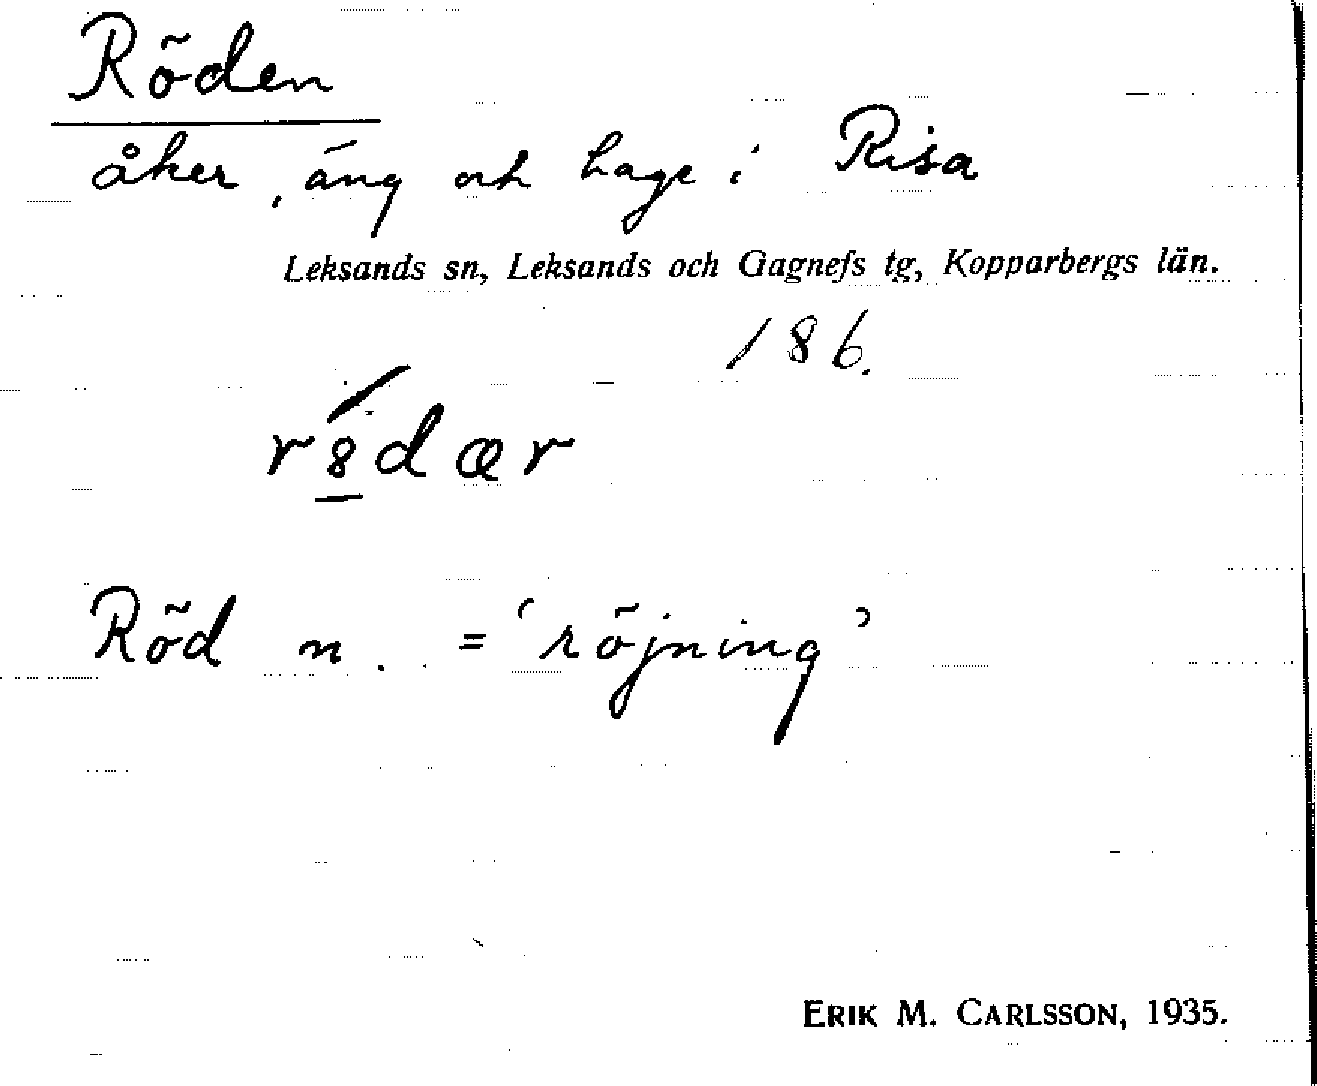 Röden
åker, äng och hage i Risa
Leksands sn, Leksands och Gagnefs tg, Kopparbergs län.
186.
r8̱́dær
Röd n. = 'röjning'
ERIK M. CARLSSON, 1935.